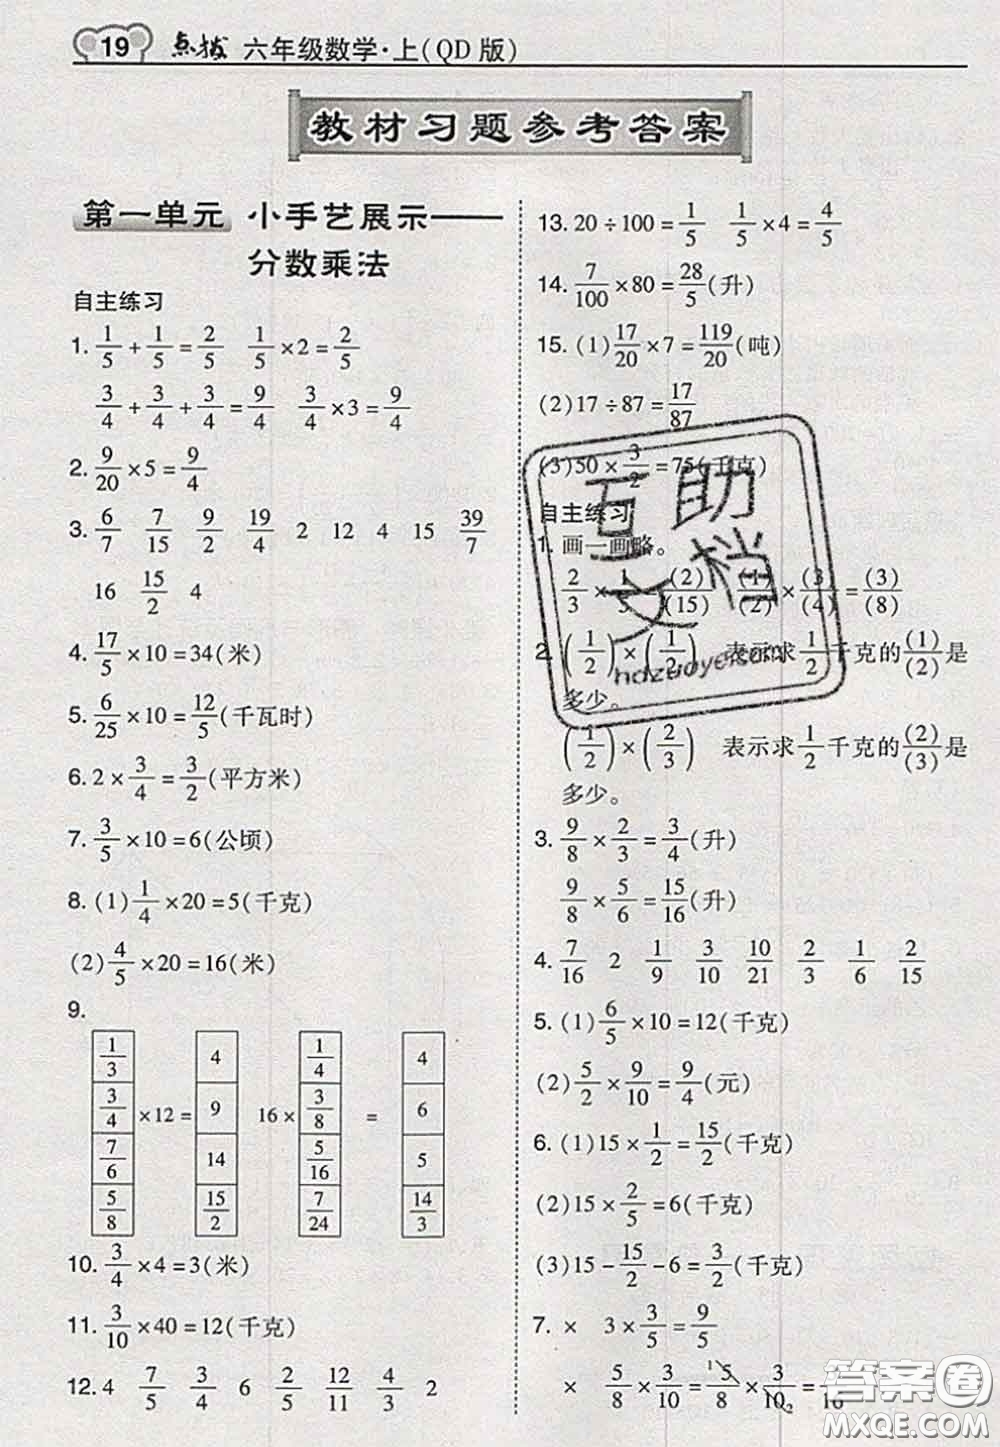 19 点拨 六年级数学·上(QD版)
教材习题参考答案
第一单元 小手艺展示——
分数乘法
自主练习
1. 1/5 + 1/5 = 2/5 1/5 ×2 = 2/5
3/4 + 3/4 + 3/4 = 9/4 3/4 ×3 = 9/4
2. 9/20 ×5 = 9/4
3. 6/7 7/15 9/2 19/4 2 12 4 15 39/7
16 15/2 4
4. 17/5 ×10=34(米)
5. 6/25 ×10 = 12/5 (千瓦时)
6. 2× 3/4 = 3/2 (平方米)
7. 3/5 ×10=6(公顷)
8. (1) 1/4 ×20=5(千克)
(2) 4/5 ×20=16(米)
9.
1/3 4 1/4 4
3/4 ×12= 9 16× 3/8 = 6
7/6 14 5/16 5
5/8 15/2 7/24 14/3
10. 3/4 ×4=3(米)
11. 3/10 ×40=12(千克)
12. 4 7/5 3/4 6 2/5 12/11 4/3 2
13. 20÷100= 1/5 1/5 ×4= 4/5
14. 7/100 ×80= 28/5 (升)
15. (1) 17/20 ×7= 119/20 (吨)
(2)17÷87= 17/87
(3)50× 3/2 =75(千克)
自主练习
1. 画一画略。
2/3 × 1/5 (2)/(15) (1)/(2) × (3)/(4) = (3)/(8)
2. (1/2)×(1/2) 表示求 1/2 千克的 (1)/(2) 是
多少。
(1/2)×(2/3) 表示求 1/2 千克的 (2)/(3) 是
多少。
3. 9/8 × 2/3 = 3/4 (升)
9/8 × 5/6 = 15/16 (升)
4. 7/16 2 1/9 3/10 10/21 2/3 1/6 2/15
5. (1) 6/5 ×10=12(千克)
(2) 5/2 × 9/10 = 9/4 (元)
6. (1)15× 1/2 = 15/2 (千克)
(2)15× 2/5 =6(千克)
(3)15- 15/2 -6= 3/2 (千克)
7. × 3× 3/5 = 9/5
× 5/8 × 3/10 = 1 5/8 × 3/10 2 = /16
互助
文档
hdzuoye.com
答案圈
MXQE.COM